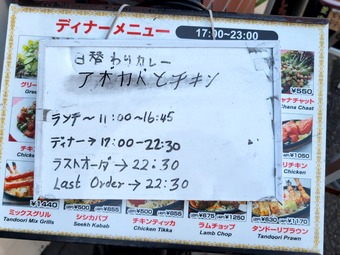 ディナーメニュー 17:00~23:00
日替わりカレー
アボカドとチキン
ランチ~11:00~16:45
ディナー→17:00-22:30
ラストオーダ→22:30
Last Order→22:30
グリー
Gree
¥550
チャナチャット
Chana Chaat
チキ
Chick
リチキン
Chicken
¥1440
ミックスグリル
Tandoori Mix Grills
シシカバブ
Seekh Kabab
チキンティッカ
Chicken Tikka
ラムチョップ
Lamb Chop
タンドーリプラウン
Tandoori Prawn